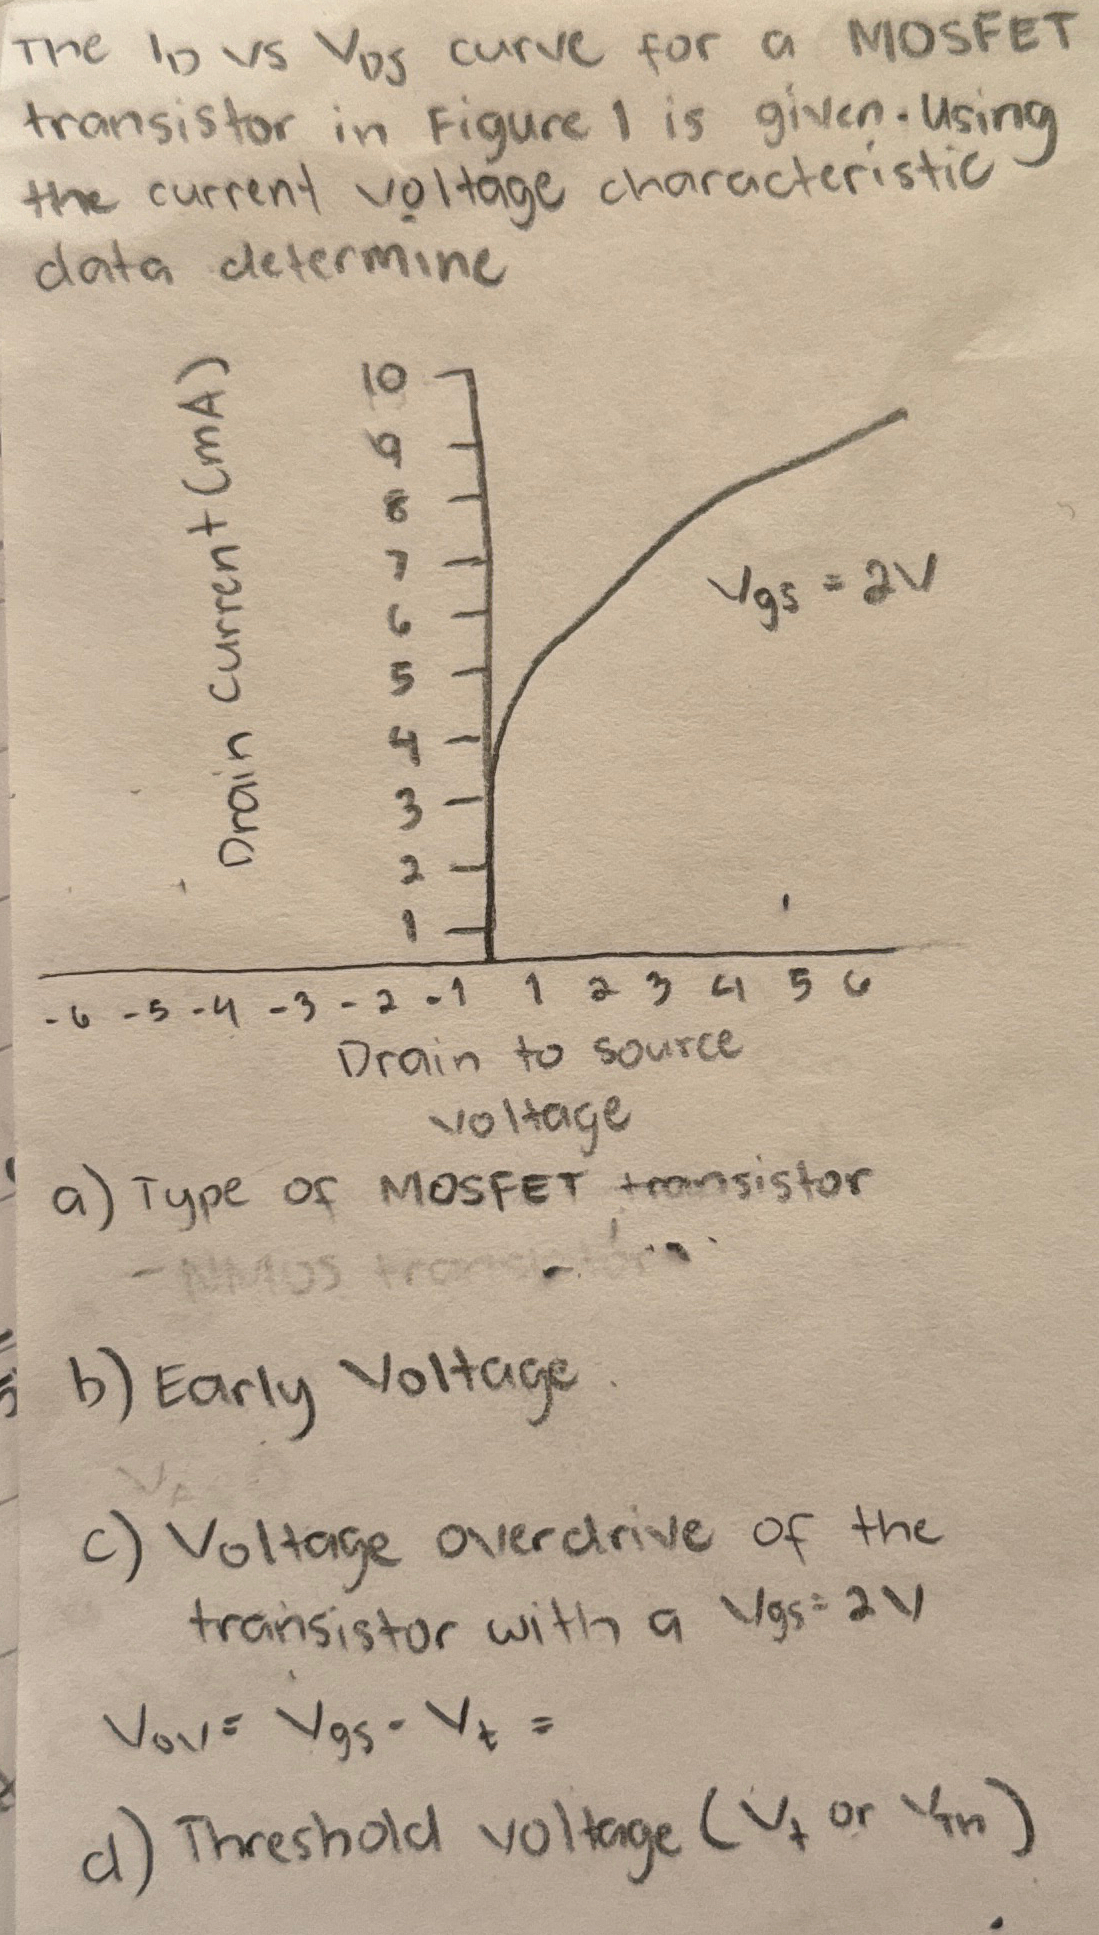 The ID vs VDS curve for a MOSFET
transistor in Figure 1 is given. Using
the current voltage characteristic
data determine
Drain Current (mA)
10
9
8
7
6
5
4
3
2
1
Vgs = 2V
-6 -5 -4 -3 -2 -1 1 2 3 4 5 6
Drain to source
voltage
a) Type of MOSFET transistor
- NMOS transistor
b) Early Voltage.
VA
c) Voltage overdrive of the
transistor with a Vgs = 2V
Vov = Vgs - Vt =
d) Threshold voltage (Vt or VTh)